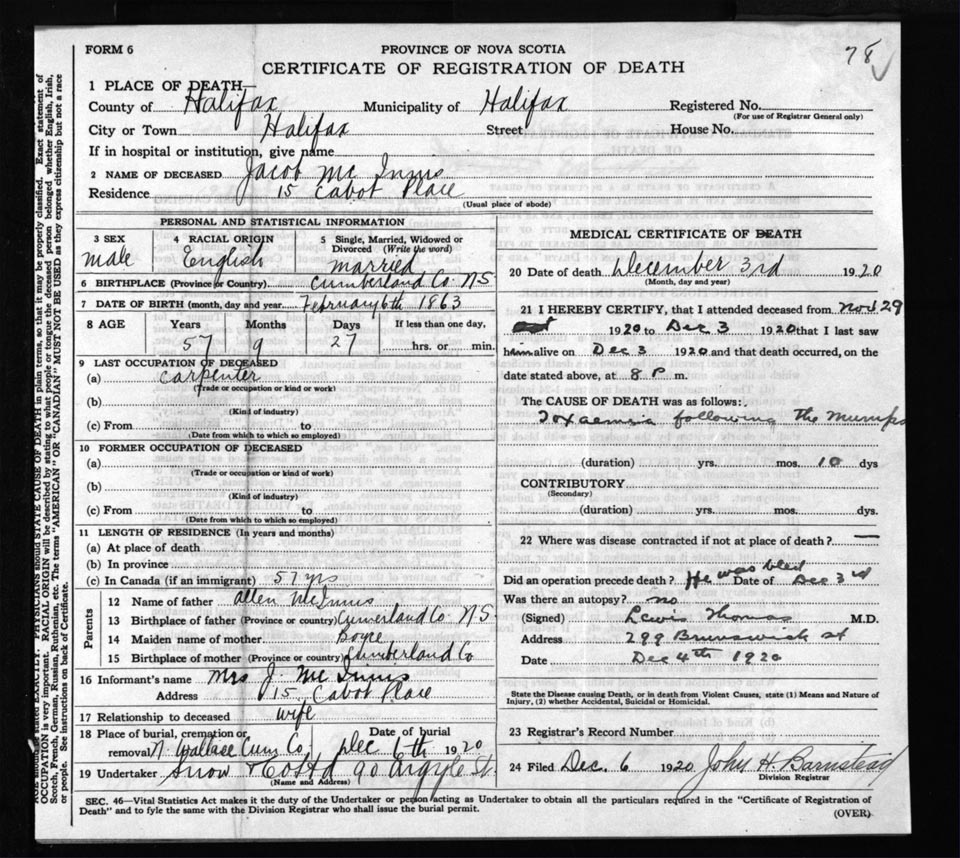 78
FORM 6
PROVINCE OF NOVA SCOTIA
CERTIFICATE OF REGISTRATION OF DEATH
1 PLACE OF DEATH—
County of Halifax Municipality of Halifax Registered No.
(For use of Registrar General only)
City or Town Halifax Street House No.
If in hospital or institution, give name
2 NAME OF DECEASED Jacob Mc Innis
Residence 15 Cabot Place
(Usual place of abode)
PERSONAL AND STATISTICAL INFORMATION
3 SEX male
4 RACIAL ORIGIN English
5 Single, Married, Widowed or Divorced (Write the word) married
6 BIRTHPLACE (Province or Country) Cumberland Co. NS
7 DATE OF BIRTH (month, day and year) February 6th 1863
8 AGE Years Months Days If less than one day,
57 9 27 hrs. or min.
9 LAST OCCUPATION OF DECEASED
(a) Carpenter
(Trade or occupation or kind or work)
(b)
(Kind of industry)
(c) From to
(Date from which to which so employed)
10 FORMER OCCUPATION OF DECEASED
(a)
(Trade or occupation or kind of work)
(b)
(Kind of industry)
(c) From to
(Date from which to which so employed)
11 LENGTH OF RESIDENCE (In years and months)
(a) At place of death
(b) In province
(c) In Canada (if an immigrant) 57 yrs
Parents
12 Name of father Allen McInnis
13 Birthplace of father (Province or country) Cumerland Co NS
14 Maiden name of mother
15 Birthplace of mother (Province or country) Cumberland Co
16 Informant's name Mrs J. Mc Innis
Address 15 Cabot Place
17 Relationship to deceased wife
18 Place of burial, cremation or removal N. Wallace Cum Co, Date of burial Dec 6th 1920
19 Undertaker Snow & Co Ltd 90 Argyle St.
(Name and Address)
MEDICAL CERTIFICATE OF DEATH
20 Date of death December 3rd 1920
(Month, day and year)
21 I HEREBY CERTIFY, that I attended deceased from Nov. 29
1920 to Dec 3 1920 that I last saw
him alive on Dec 3 1920 and that death occurred, on the
date stated above, at 8 P. m.
The CAUSE OF DEATH was as follows:
Toxaemia following the Mumps
(duration) yrs. mos. 10 dys
CONTRIBUTORY
(Secondary)
(duration) yrs. mos. dys.
22 Where was disease contracted if not at place of death? —
Did an operation precede death? He was bled Date of Dec 3rd
Was there an autopsy? no
(Signed) Lewis Thomas M.D.
Address 299 Brunswick st
Date Dec 4th 1920
State the Disease causing Death, or in death from Violent Causes, state (1) Means and Nature of
Injury, (2) whether Accidental, Suicidal or Homicidal.
23 Registrar's Record Number
24 Filed Dec. 6 1920 John H. Barnstead
Division Registrar
SEC. 46—Vital Statistics Act makes it the duty of the Undertaker or person acting as Undertaker to obtain all the particulars required in the "Certificate of Registration of
Death" and to fyle the same with the Division Registrar who shall issue the burial permit.
(OVER)
stated EXACTLY. PHYSICIANS should STATE CAUSE OF DEATH in plain terms, so that it may be properly classified. Exact statement of
OCCUPATION is very important. RACIAL ORIGIN will be described by stating to what people or tongue the deceased person belonged whether English, Irish,
Scotch, French, German, Russian, Ruthenian, etc. The terms "AMERICAN" OR "CANADIAN" MUST NOT BE USED as they express citizenship but not a race
or people. See instructions on back of Certificate.